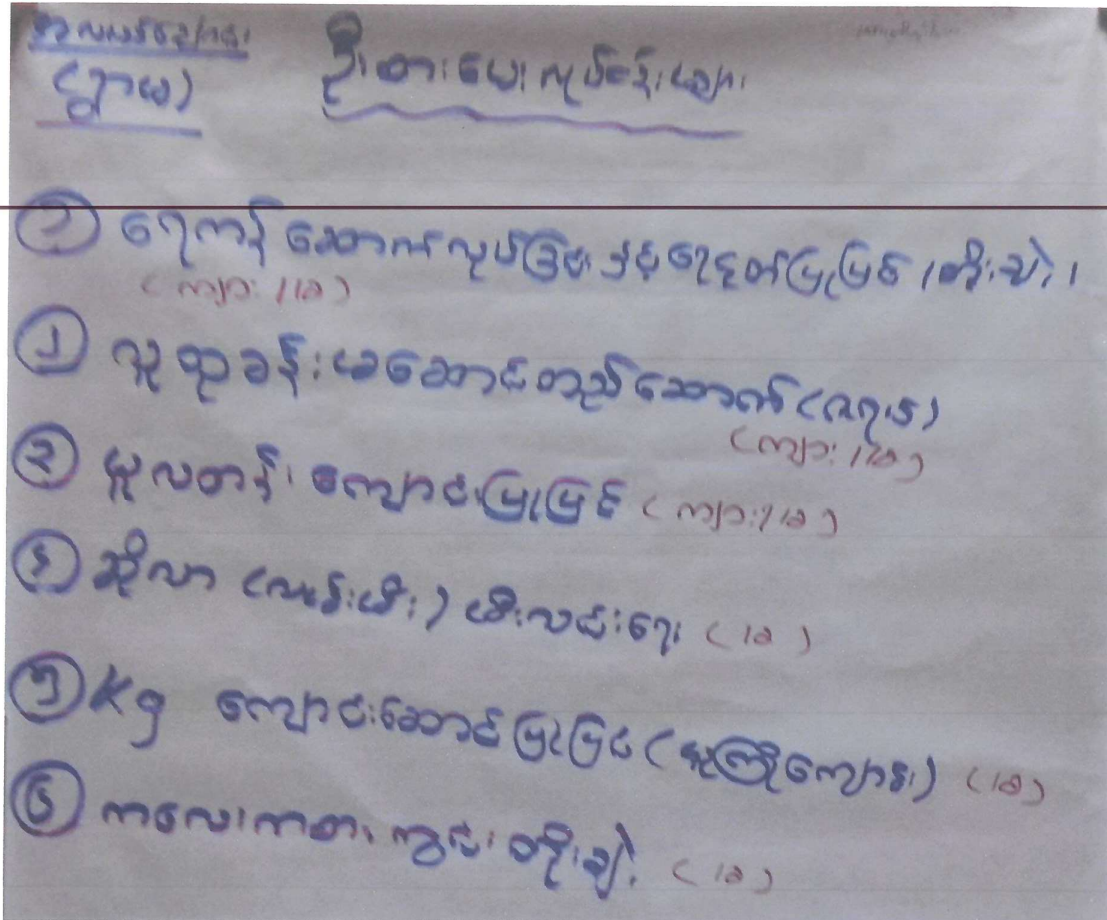 (ရွာမ) ဦးစားပေးလုပ်ငန်းများ
၁ ရေကန် ဆောက်လုပ်ခြင်း နှင့် ရေဝတ်ပြုပြင် / တိုးချဲ့ ၊
(ကျား / မ)
၂ လူထုခန်းမဆောင်တည်ဆောက်
(ကျား / မ)
၃ မူလတန်း ကျောင်းပြုပြင် (ကျား / မ)
၄ ဆိုလာ (လမ်းမီး) မီးလင်းရေး (မ)
၅ Kg ကျောင်းဆောင်ပြုပြင် (မူကြိုကျောင်း) (မ)
၆ ကလေးကစား ကွင်း တိုးချဲ့ (မ)